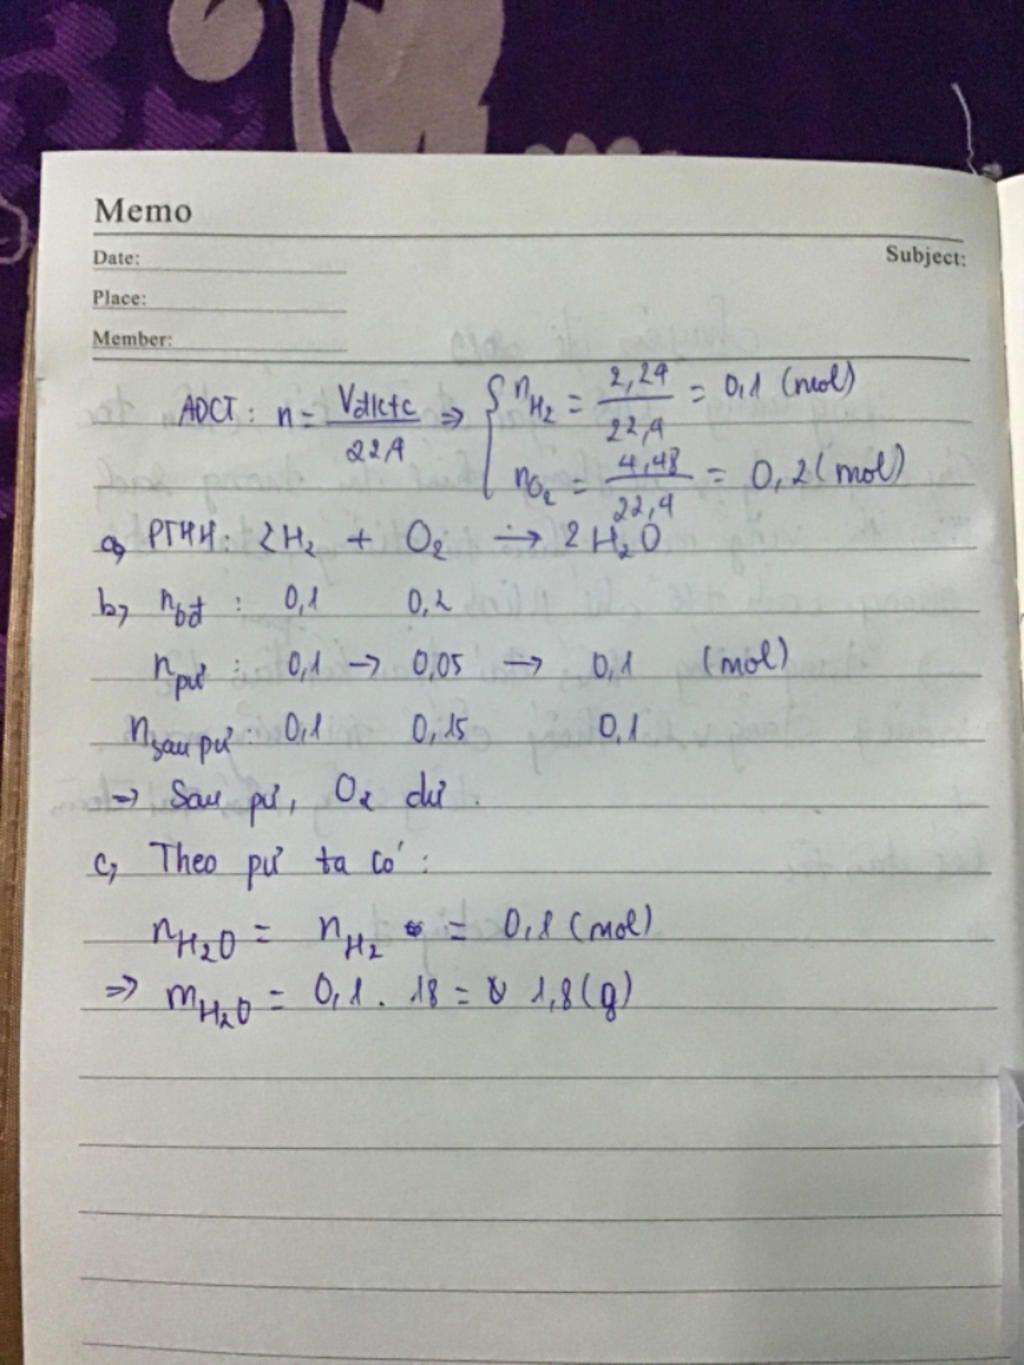 Memo
Date:
Subject:
Place:
Member:
ADCT: n = Vđktc / 22,4 => { nH₂ = 2,24 / 22,4 = 0,1 (mol)
nO₂ = 4,48 / 22,4 = 0,2 (mol)
a, PTHH: 2H₂ + O₂ → 2H₂O
b, nbđ : 0,1 0,2
npư : 0,1 → 0,05 → 0,1 (mol)
nsau pư : 0,1 0,15 0,1
=> Sau pư, O₂ dư .
c, Theo pư ta có :
nH₂O = nH₂ = 0,1 (mol)
=> mH₂O = 0,1 . 18 = 1,8 (g)